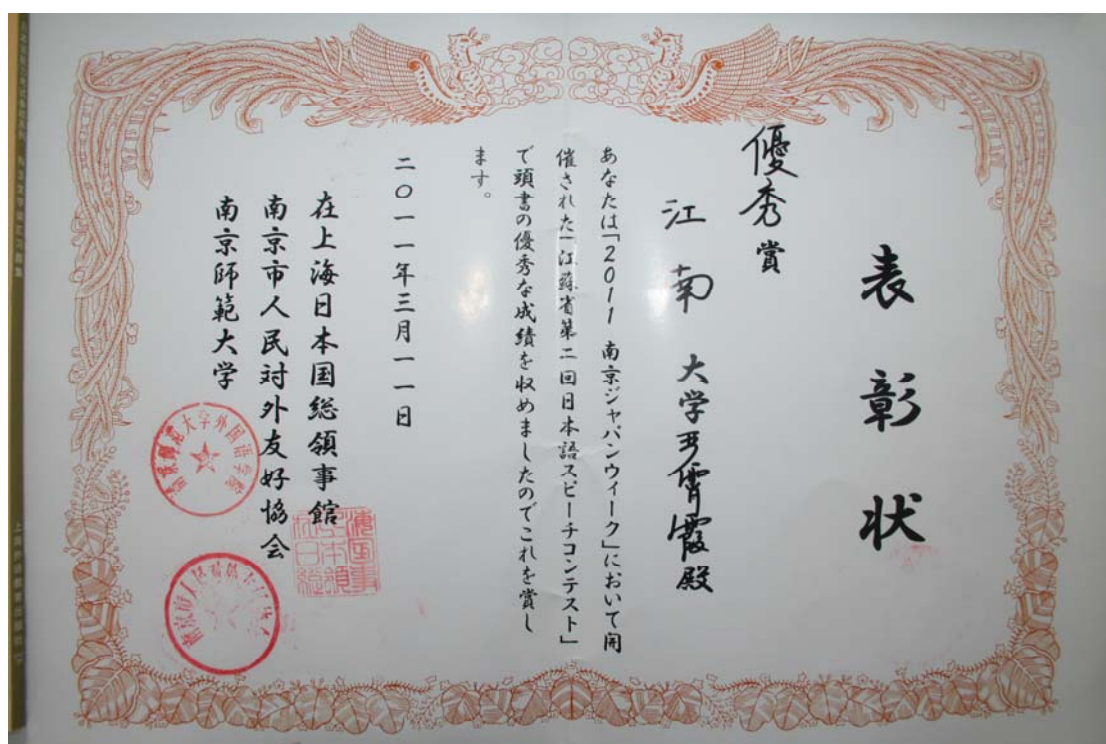 表彰状
優秀賞
江南大学 霄霞殿
あなたは「2011 南京ジャパンウィーク」において開
催された「江蘇省第二回日本語スピーチコンテスト」
で頭書の優秀な成績を収めましたのでこれを賞し
ます。
二〇一一年三月一一日
在上海日本国総領事館
南京市人民対外友好協会
南京師範大学
南京师范大学外国语学院